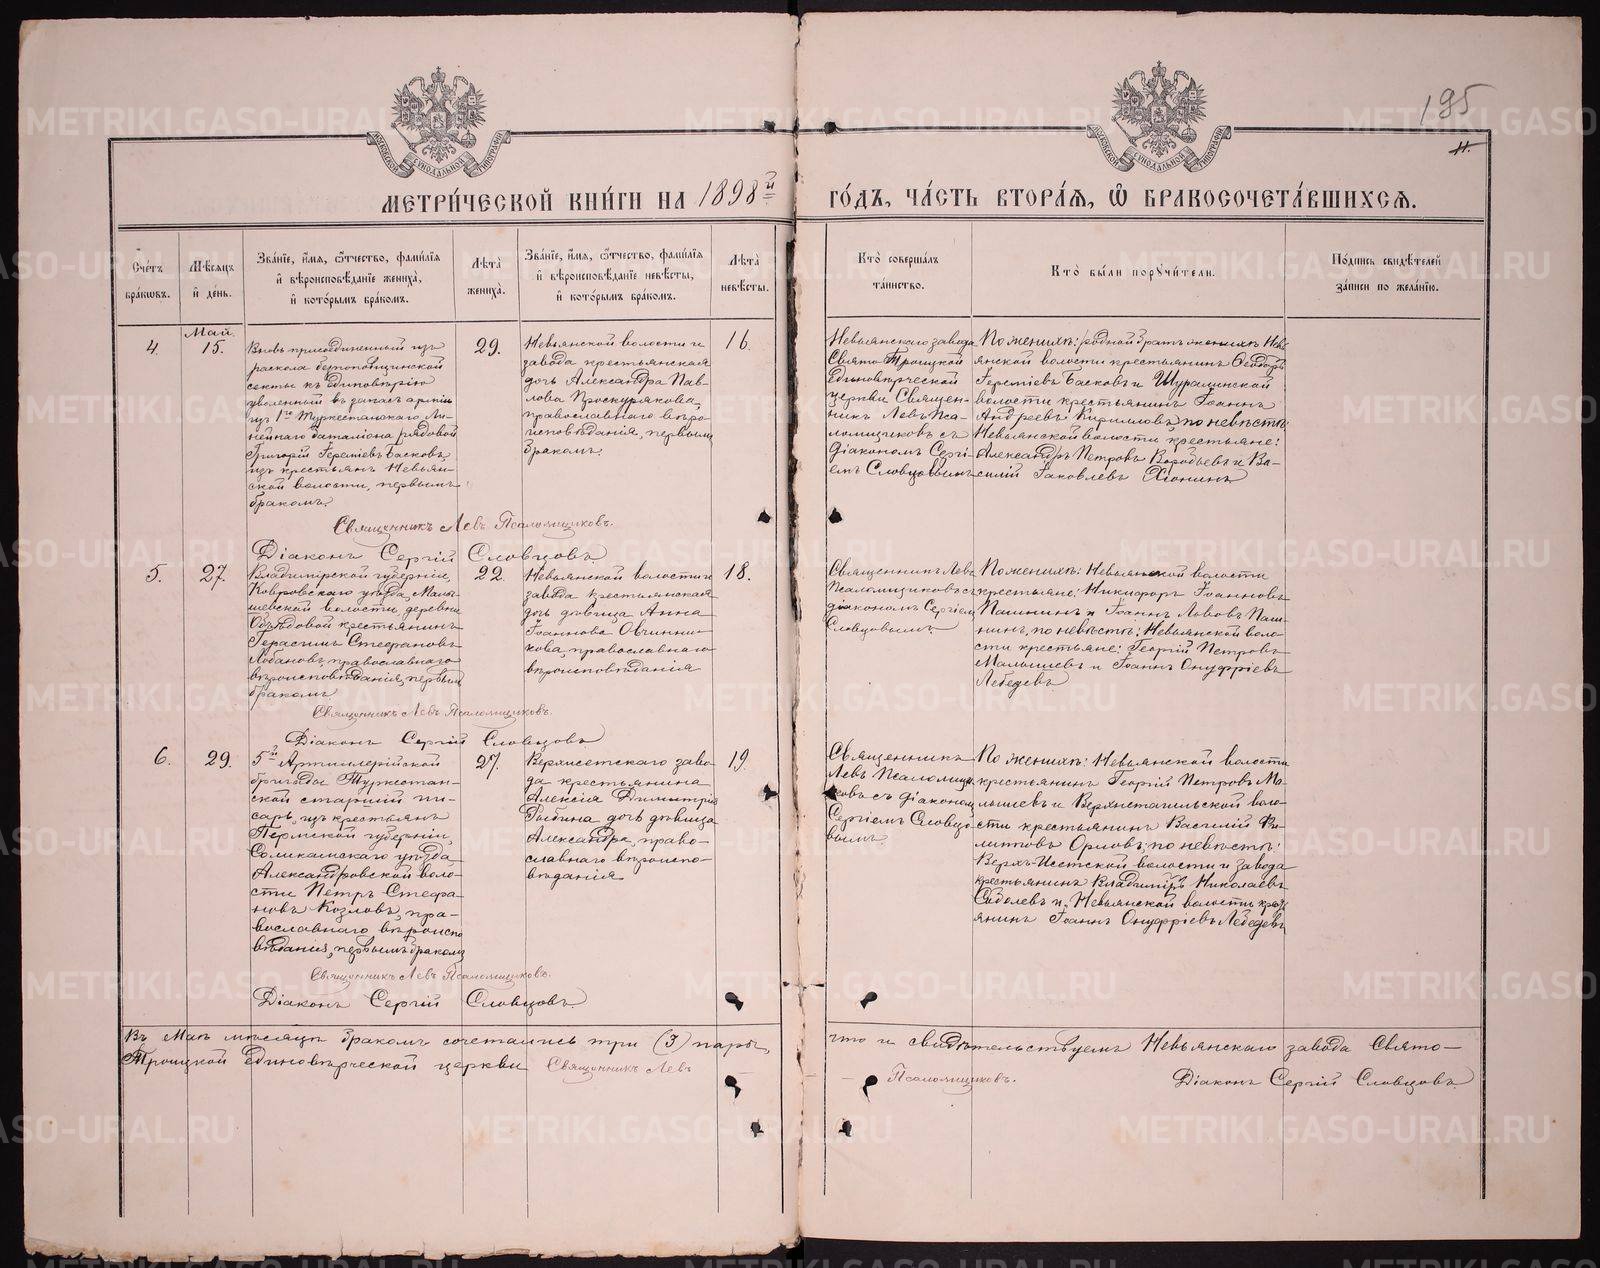 195
11.
МЕТРИ́ЧЕСКОЙ КНИ́ГИ НА 1898й ГО́ДЪ, ЧА́СТЬ ВТОРА́Я, Ѽ БРАКОСОЧЕТА́ВШИХСЯ.
Сче́тъ бра́ковъ.
Мѣ́сяцъ и҆ де́нь.
Зва́нїе, и҆́мя, ѻ҆́тчество, фами́лїя
и҆ вѣроисповѣ́данїе жениха̀,
и҆ кото́рымъ бра́комъ.
Лѣта̀ жениха̀.
Зва́нїе, и҆́мя, ѻ҆́тчество, фами́лїя
и҆ вѣроисповѣ́данїе невѣ́сты,
и҆ кото́рымъ бра́комъ.
Лѣта̀ невѣ́сты.
Кто̀ соверша́лъ
та́инство.
Кто̀ бы́ли порꙋчи́тели.
По́дпись свидѣ́телей
за́писи по жела́нїю.
4.
Май.
15.
Вновь присоединенный изъ
раскола безпоповщинской
секты къ единовѣрію
уволенный въ запасъ арміи
изъ 1го Туркестанскаго Ли-
нейнаго баталіона рядовой
Григорій Іереміевъ Басковъ,
изъ крестьянъ Невьян-
ской волости, первымъ
бракомъ.
29.
Невьянской волости и
завода крестьянская
дочь Александра Пав-
лова Проскурякова,
православнаго вѣро-
исповѣданія, первымъ
бракомъ.
16.
Невьянскаго завода
Свято-Троицкой
единовѣрческой
церкви Священ-
никъ Левъ Пса-
ломщиковъ съ
діакономъ Сергі-
емъ Словцовымъ
По женихѣ: родной братъ жениха Невь-
янской волости крестьянинъ Ѳеодоръ
Іереміевъ Басковъ и Шуралинской
волости крестьянинъ Іоаннъ
Андреевъ Кирилловъ, по невѣстѣ:
Невьянской волости крестьяне:
Александръ Петровъ Воробьевъ и Ва-
силій Іаковлевъ
Священникъ Левъ Псаломщиковъ.
Діаконъ Сергій Словцовъ
5.
27.
Владимірской губерніи,
Ковровскаго уѣзда, Малы-
шевской волости, деревни
крестьянинъ
Герасимъ Стефановъ
Лобановъ, православнаго
вѣроисповѣданія, первымъ
бракомъ
22.
Невьянской волости и
завода крестьянская
дочь дѣвица Анна
Іоаннова Овчинни-
кова, православнаго
вѣроисповѣданія
18.
Священникъ Левъ
Псаломщиковъ съ
діакономъ Сергіем
Словцовымъ.
По женихѣ: Невьянской волости
крестьяне: Никифоръ Іоанновъ
Пашнинъ и Іоаннъ Львовъ Паш-
нинъ, по невѣстѣ: Невьянской воло-
сти крестьяне: Георгій Петровъ
Малышевъ и Іоаннъ Онуфріевъ
Лебедевъ
Священникъ Левъ Псаломщиковъ.
Діаконъ Сергій Словцовъ
6.
29.
5й Артиллерійской
бригады Туркестан-
ской старшій пи-
сарь, изъ крестьянъ
Пермской губерніи,
Соликамскаго уѣзда
Александровской воло-
сти Петръ Стефа-
новъ Козловъ, пра-
вославнаго вѣроиспо-
вѣданія, первымъ бракомъ
27.
Верхисетскаго заво-
да крестьянина
Алексія Димитріе
Рыбина дочь дѣвица
Александра, право-
славнаго вѣроиспо-
вѣданія
19.
Священникъ
Левъ Псаломщи-
ковъ съ діаконом
Сергіемъ Словцо-
вымъ
По женихѣ: Невьянской волости
крестьянинъ Георгій Петровъ Ма-
лышевъ и Верхнетагильской воло-
сти крестьянинъ Василій Фи-
липповъ Орловъ, по невѣстѣ:
Верхъ-Исетской волости и завода
крестьянинъ Владиміръ Николаевъ
Соболевъ и Невьянской волости кресть-
янинъ Іоаннъ Онуфріевъ Лебедевъ
Священникъ Левъ Псаломщиковъ.
Діаконъ Сергій Словцовъ.
Въ Маѣ мѣсяцѣ бракомъ сочетались три (3) пары, что и свидѣтельствуемъ Невьянскаго завода Свято-
Троицкой единовѣрческой церкви Священникъ Левъ Псаломщиковъ. Діаконъ Сергій Словцовъ.
METRIKI.GASO-URAL.RU